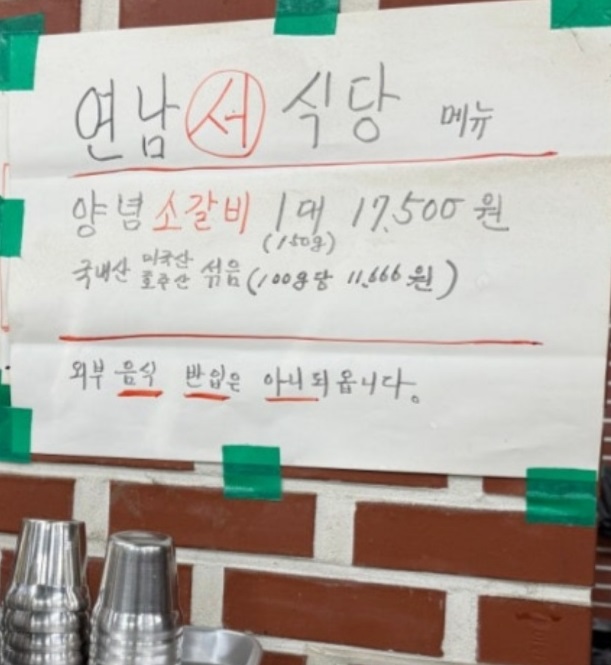 연남서식당 메뉴
양념소갈비 1대 17,500원
(150g)
국내산 미국산 호주산 섞음 (100g당 11,666원)
외부 음식 반입은 아니되옵니다.